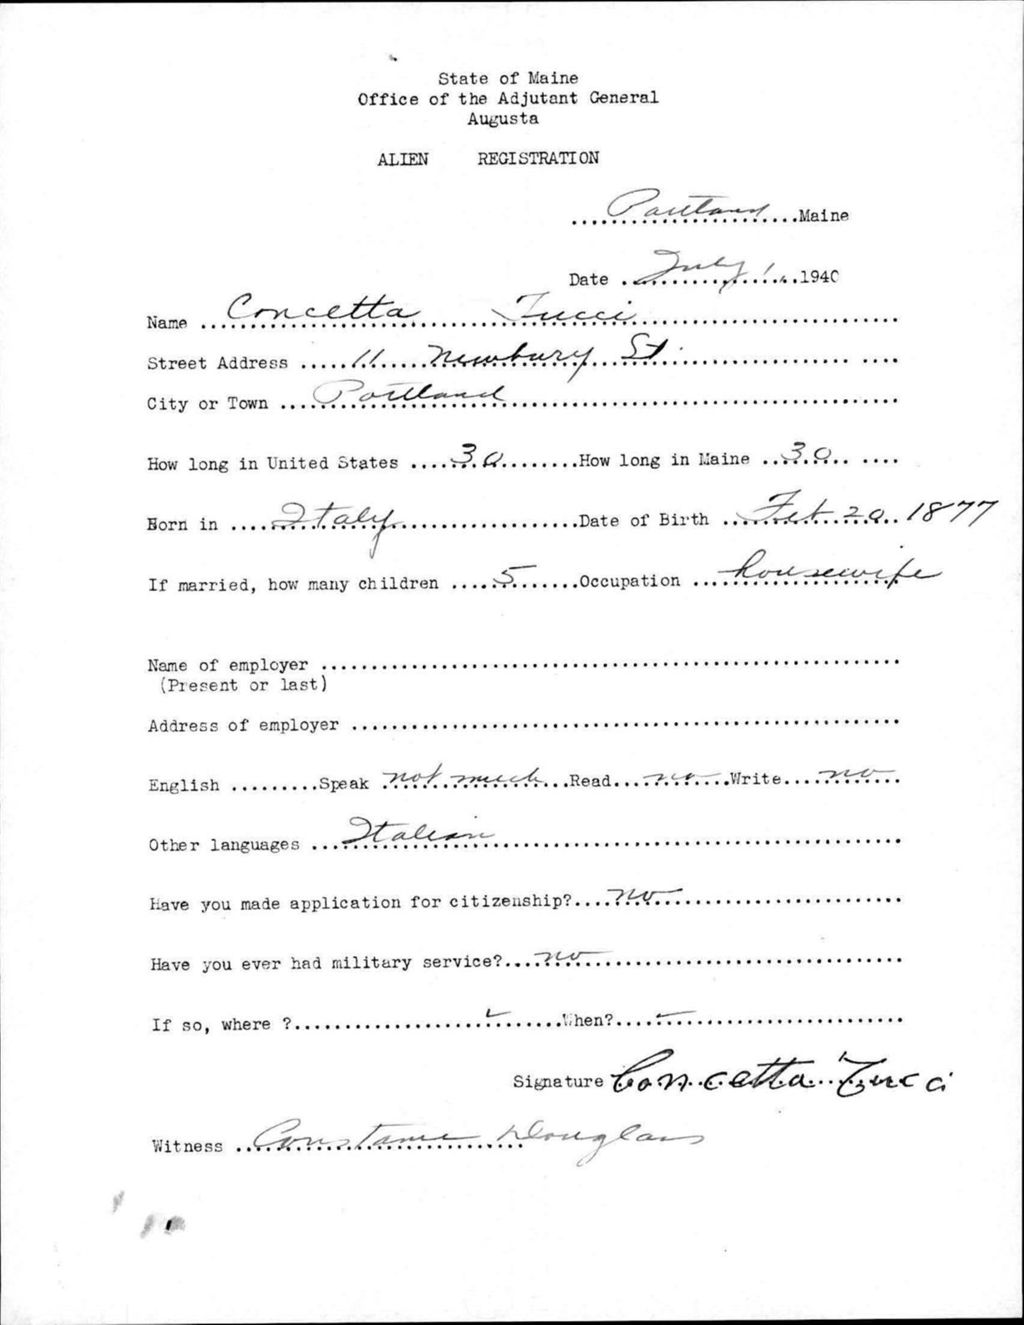 State of Maine
Office of the Adjutant General
Augusta
ALIEN REGISTRATION
Portland Maine
Date July 1, 1940
Name Concetta Tucci
Street Address 11 Newbury St.
City or Town Portland
How long in United States 30 How long in Maine 30
Born in Italy Date of Birth Feb 20, 1877
If married, how many children 5 Occupation housewife
Name of employer
(Present or last)
Address of employer
English Speak not much Read no Write no
Other languages Italian
Have you made application for citizenship? no
Have you ever had military service? no
If so, where ? When?
Signature Concetta Tucci
Witness Constance Douglass